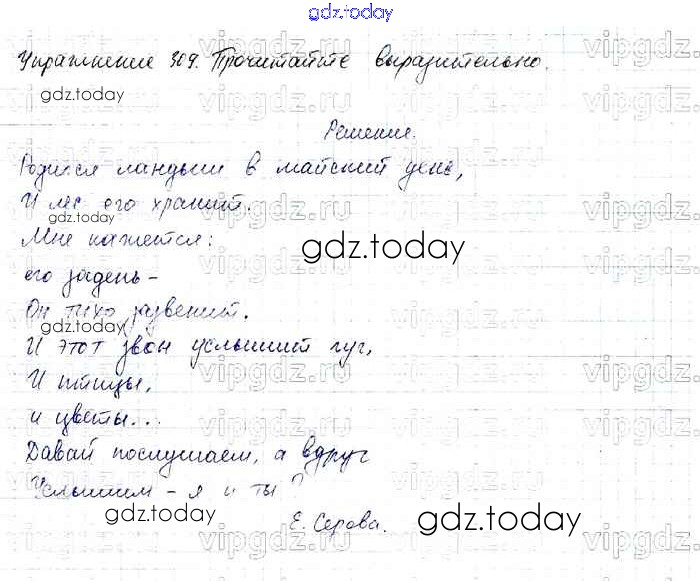 gdz.today
Упражнение 309. Прочитайте выразительно.
gdz.today
Решение.
Родился ландыш в майский день,
И лес его хранит.
gdz.today
Мне кажется:
gdz.today
его задень –
Он тихо зазвенит.
gdz.today
И этот звон услышит луг,
И птицы,
и цветы...
Давай послушаем, а вдруг
Услышим – я и ты?
gdz.today
Е. Серова.
gdz.today